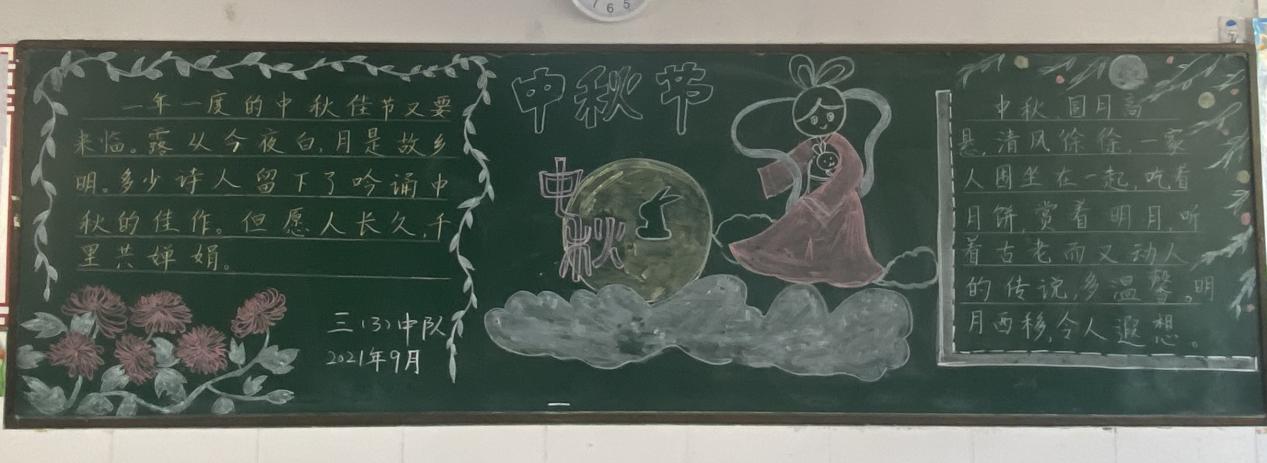 一年一度的中秋佳节又要
来临。露从今夜白，月是故乡
明。多少诗人留下了吟诵中
秋的佳作。但愿人长久，千
里共婵娟。
三（3）中队
2021年9月
中秋节
中
秋
中秋，圆月高
悬，清风徐徐，一家
人团坐在一起，吃着
月饼，赏着明月，听
着古老而又动人
的传说，多温馨。明
月西移，令人遐想。
7 6 5